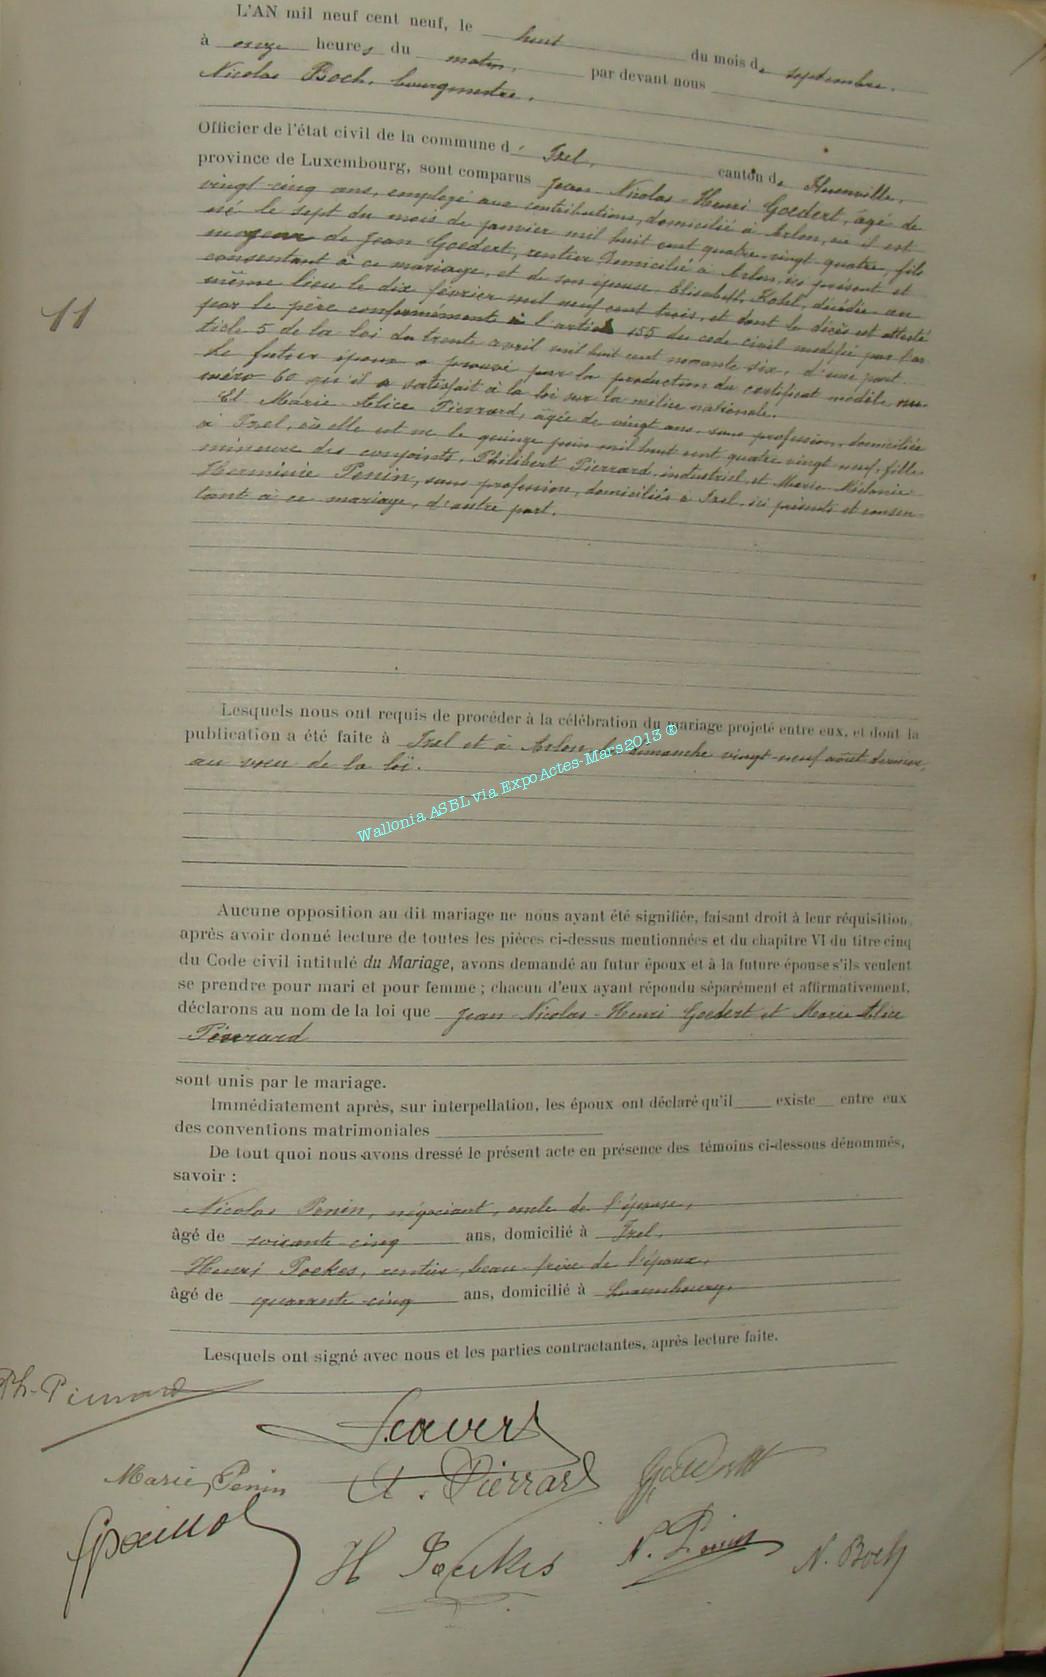 L'AN mil neuf cent neuf, le huit du mois de septembre,
à onze heures du matin, par devant nous
Nicolas Boch, bourgmestre,
Officier de l'état civil de la commune d' Izel, canton de
province de Luxembourg, sont comparus Jean-Nicolas-Henri Goedert, âgé de
vingt-cinq ans, employé aux contributions, domicilié à Arlon, où il est
né le sept du mois de janvier mil huit cent quatre-vingt-quatre, fils
majeur de Jean Goedert, rentier, domicilié à Arlon, ici présent et
consentant à ce mariage, et de son épouse Elisabeth décédée au
même lieu le dix février mil neuf cent trois, et dont le décès est attesté
par le père conformément à l'article 155 du code civil modifié par l'ar
ticle 5 de la loi du trente avril mil huit cent nonante six, d'une part.
Le futur époux a prouvé par la production du certificat modèle nu-
méro 60 qu'il a satisfait à la loi sur la milice nationale.
Et Marie-Alice Pierrard, âgée de vingt ans, sans profession, domiciliée
à Izel, où elle est née le quinze juin mil huit cent quatre vingt neuf, fille
mineure des conjoints, Philibert Pierrard, industriel, et Marie-Mélanie-
Herminie Penin, sans profession, domiciliés à Izel, ici présents et consen-
tant à ce mariage, d'autre part.
11
Lesquels nous ont requis de procéder à la célébration du mariage projeté entre eux, et dont la
publication a été faite à Izel et à Arlon le dimanche vingt-neuf août dernier,
au vœu de la loi.
Wallonia ASBL via ExpoActes-Mars2013 ®
Aucune opposition au dit mariage ne nous ayant été signifiée, faisant droit à leur réquisition,
après avoir donné lecture de toutes les pièces ci-dessus mentionnées et du chapitre VI du titre cinq
du Code civil intitulé du Mariage, avons demandé au futur époux et à la future épouse s'ils veulent
se prendre pour mari et pour femme ; chacun d'eux ayant répondu séparément et affirmativement,
déclarons au nom de la loi que Jean-Nicolas-Henri Goedert et Marie-Alice
Pierrard
sont unis par le mariage.
Immédiatement après, sur interpellation, les époux ont déclaré qu'il existe entre eux
des conventions matrimoniales
De tout quoi nous avons dressé le présent acte en présence des témoins ci-dessous dénommés,
savoir :
Nicolas Penin, négociant, oncle de l'épouse,
âgé de soixante-cinq ans, domicilié à Izel,
Henri Poekes, rentier, beau-frère de l'époux,
âgé de quarante-cinq ans, domicilié à Luxembourg,
Lesquels ont signé avec nous et les parties contractantes, après lecture faite.
Ph. Pierrard
Marie Penin
A. Pierrard
N. Penin
N. Boch